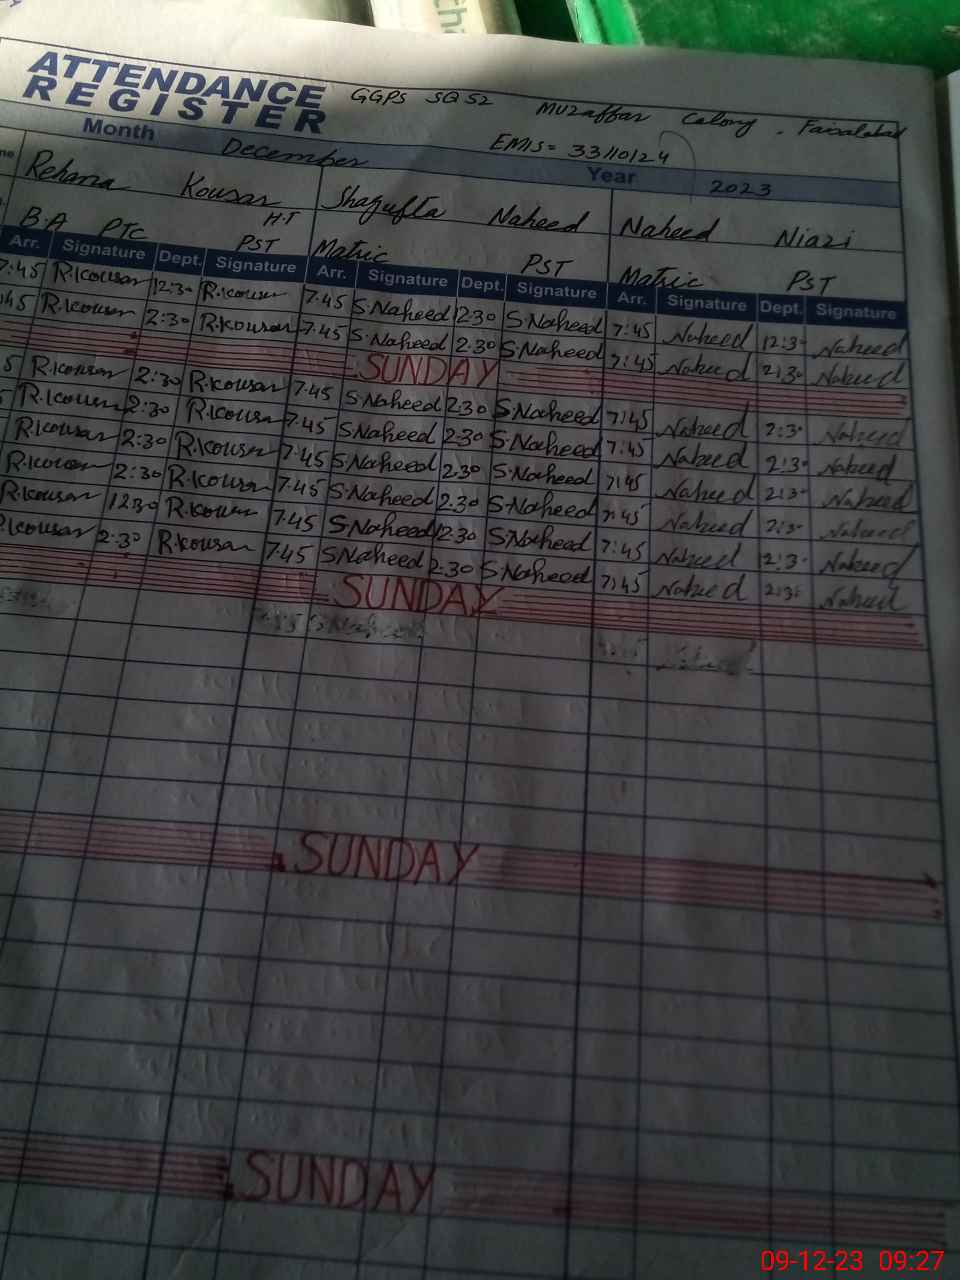 ATTENDANCE
REGISTER
GGPS SQ 52 Muzaffar Colony . Faisalabad
EMIS = 33110124
Month December Year 2023
Rehana Kousar H.T Shagufta Naheed Naheed Niazi
B.A PTC PST Matric PST Matric PST
Arr. Signature Dept. Signature Arr. Signature Dept. Signature Arr. Signature Dept. Signature
7:45 R.Kousar 12:30 R.Kousar 7.45 S.Naheed 12:30 S.Naheed 7:45 Naheed 12:30 Naheed
R.Kousar 2:30 R.Kousar 7.45 S.Naheed 2:30 S.Naheed 7:45 Naheed 2:30 Naheed
SUNDAY
R.Kousar 2:30 R.Kousar 7.45 S.Naheed 2:30 S.Naheed 7:45 Naheed 2:30 Naheed
R.Kousar 2:30 R.Kousar 7.45 S.Naheed 2:30 S.Naheed 7:45 Naheed 2:30 Naheed
R.Kousar 2:30 R.Kousar 7.45 S.Naheed 2:30 S.Naheed 7:45 Naheed 2:30 Naheed
R.Kousar 2:30 R.Kousar 7.45 S.Naheed 2:30 S.Naheed 7:45 Naheed 2:30 Naheed
R.Kousar 12:30 R.Kousar 7.45 S.Naheed 12:30 S.Naheed 7:45 Naheed 12:30 Naheed
R.Kousar 2:30 R.Kousar 7.45 S.Naheed 2:30 S.Naheed 7:45 Naheed 2:30 Naheed
SUNDAY
SUNDAY
SUNDAY
09-12-23 09:27